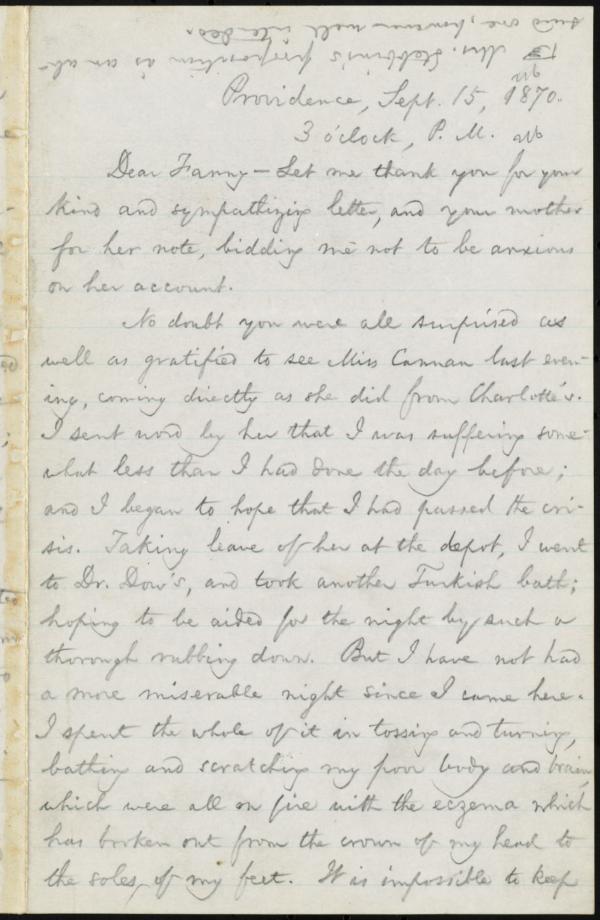 ☞ Mrs. Stebbins's proposition is an ab-
surd one, however well intended.
Providence, Sept. 15, 1870.
3 o'clock, P. M.
Dear Fanny — Let me thank you for your
kind and sympathizing letter, and your mother
for her note, bidding me not to be anxious
on her account.
No doubt you were all surprised as
well as gratified to see Miss Cannan last even-
ing, coming directly as she did from Charlotte's.
I sent word by her that I was suffering some-
what less than I had done the day before;
and I began to hope that I had passed the cri-
sis. Taking leave of her at the depot, I went
to Dr. Dow's, and took another Turkish bath;
hoping to be aided for the night by such a
thorough rubbing down. But I have not had
a more miserable night since I came here.
I spent the whole of it in tossing and turning,
bathing and scratching my poor body and brain,
which were all on fire with the eczema which
has broken out from the crown of my head to
the soles of my feet. It is impossible to keep